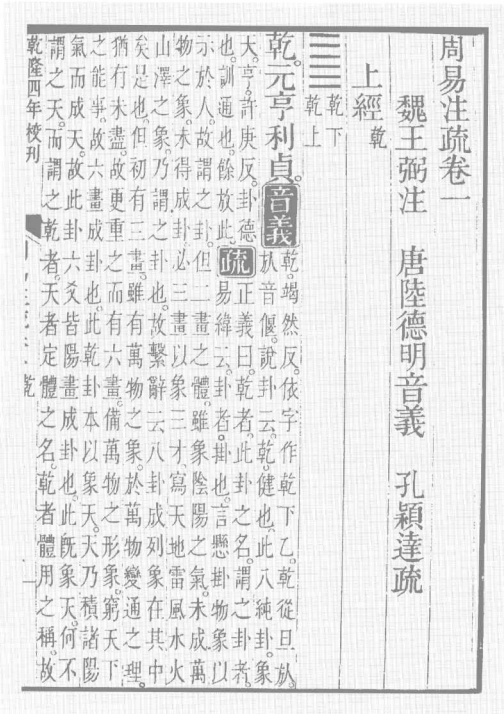 周易注疏卷一
魏王弼注 唐陸德明音義 孔穎達疏
上經 乾
䷀ 乾下
乾上
乾。元亨利貞。音義 乾。竭然反。依字作乾下乙。乾從旦㫃。
㫃音偃。說卦云。乾。健也。此八純卦。象
大。亨。許庚反。卦德
也。訓通也。餘放此。疏 正義曰。乾者。此卦之名。謂之卦者。
易緯云。卦者。掛也。言懸掛物象以
示於人。故謂之卦。但二畫之體。雖象陰陽之氣。未成萬
物之象。未得成卦。必三畫以象三才。寫天地雷風水火
山澤之象。乃謂之卦也。故繫辭云八卦成列。象在其中
矣是也。但初有三畫。雖有萬物之象。於萬物變通之理。
猶有未盡。故更重之而有六畫。備萬物之形象。窮天下
之能事。故六畫成卦也。此乾卦本以象天。天乃積諸陽
氣而成天。故此卦六爻皆陽畫成卦也。此旣象天。何不
謂之天。而謂之乾者。天者定體之名。乾者體用之稱。故
乾隆四年校刊 乾